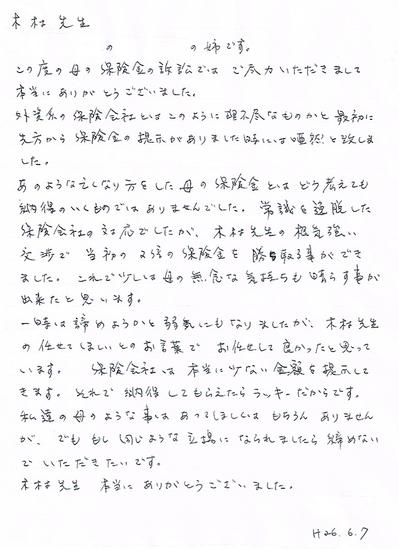 木村先生
の の姉です。
この度の母の保険金の訴訟では ご尽力いただきまして
本当にありがとうございました。
外資系の保険会社とはこのように理不尽なものかと最初に
先方から保険金の提示がありました時には唖然と致しま
した。
あのような亡くなり方をした母の保険金とはどう考えても
納得のいくものではありませんでした。常識を逸脱した
保険会社の対応でしたが、木村先生の根気強い
交渉で 当初の 倍の保険金を勝ち取る事ができ
ました。これで少しは母の無念な気持ちも晴らす事が
出来たと思います。
一時は諦めようかと弱気にもなりましたが、木村先生
の任せてほしいとのお言葉で お任せして良かったと思って
います。 保険会社は本当に少ない金額を提示して
きます。それで納得してもらえたらラッキーだからです。
私達の母のような事は あってほしくは もちろん ありません
が、でも もし同じような立場に なられましたら 諦めない
で いただきたいです。
木村先生 本当に ありがとうございました。
H26.6.7